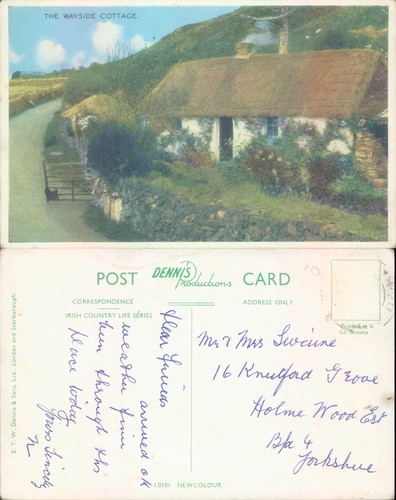 THE WAYSIDE COTTAGE.
POST DENNIS Productions CARD
CORRESPONDENCE
ADDRESS ONLY
IRISH COUNTRY LIFE SERIES
Printed in
Gt. Britain
E. T. W. Dennis & Sons, Ltd., London and Scarborough.
Dear
arrived ok
weather fine
been through this
place today
yours Sincely
Mr & Mrs
16 Knutford Grove
Holme Wood Est
Bfd 4
Yorkshire
10101 NEWCOLOUR